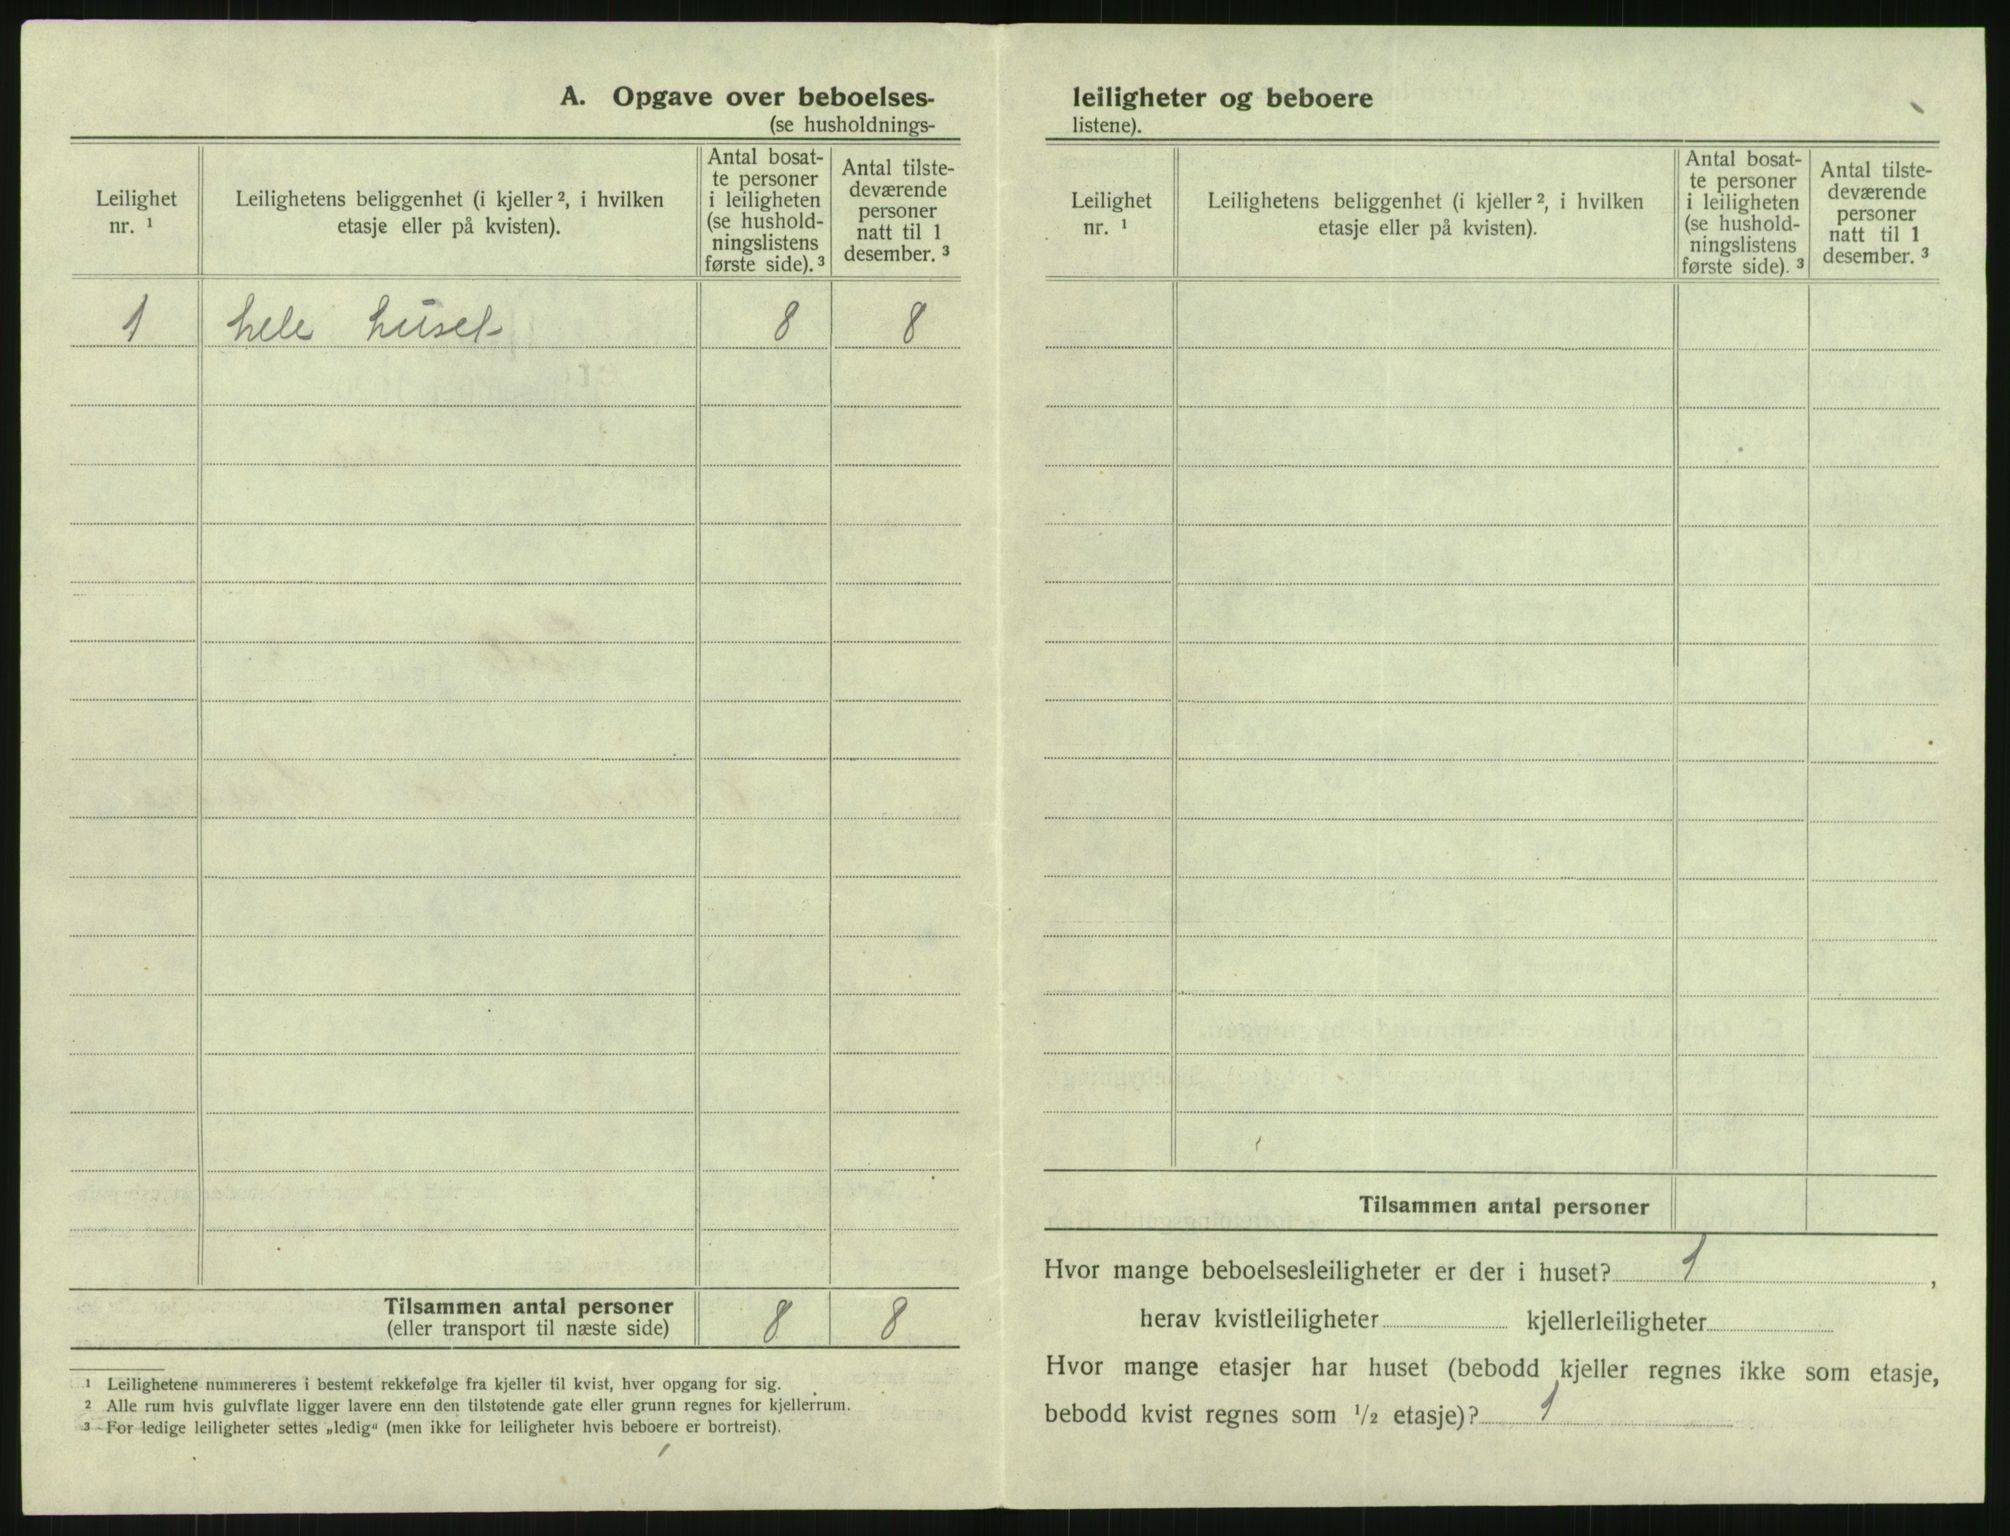 A. Opgave over beboelses-
(se husholdnings-
Leilighet
nr. ¹
Leilighetens beliggenhet (i kjeller ², i hvilken
etasje eller på kvisten).
Antal bosat-
te personer
i leiligheten
(se hushold-
ningslistens
første side). ³
Antal tilste-
deværende
personer
natt til 1
desember. ³
1 hele huset 8 8
Tilsammen antal personer 8 8
(eller transport til næste side)
¹ Leilighetene nummereres i bestemt rekkefølge fra kjeller til kvist, hver opgang for sig.
² Alle rum hvis gulvflate ligger lavere enn den tilstøtende gate eller grunn regnes for kjellerrum.
³ For ledige leiligheter settes „ledig“ (men ikke for leiligheter hvis beboere er bortreist).
leiligheter og beboere
listene).
Leilighet
nr. ¹
Leilighetens beliggenhet (i kjeller ², i hvilken
etasje eller på kvisten).
Antal bosat-
te personer
i leiligheten
(se hushold-
ningslistens
første side). ³
Antal tilste-
deværende
personer
natt til 1
desember. ³
Tilsammen antal personer
Hvor mange beboelsesleiligheter er der i huset? 1 ,
herav kvistleiligheter kjellerleiligheter
Hvor mange etasjer har huset (bebodd kjeller regnes ikke som etasje,
bebodd kvist regnes som ¹/₂ etasje)? 1